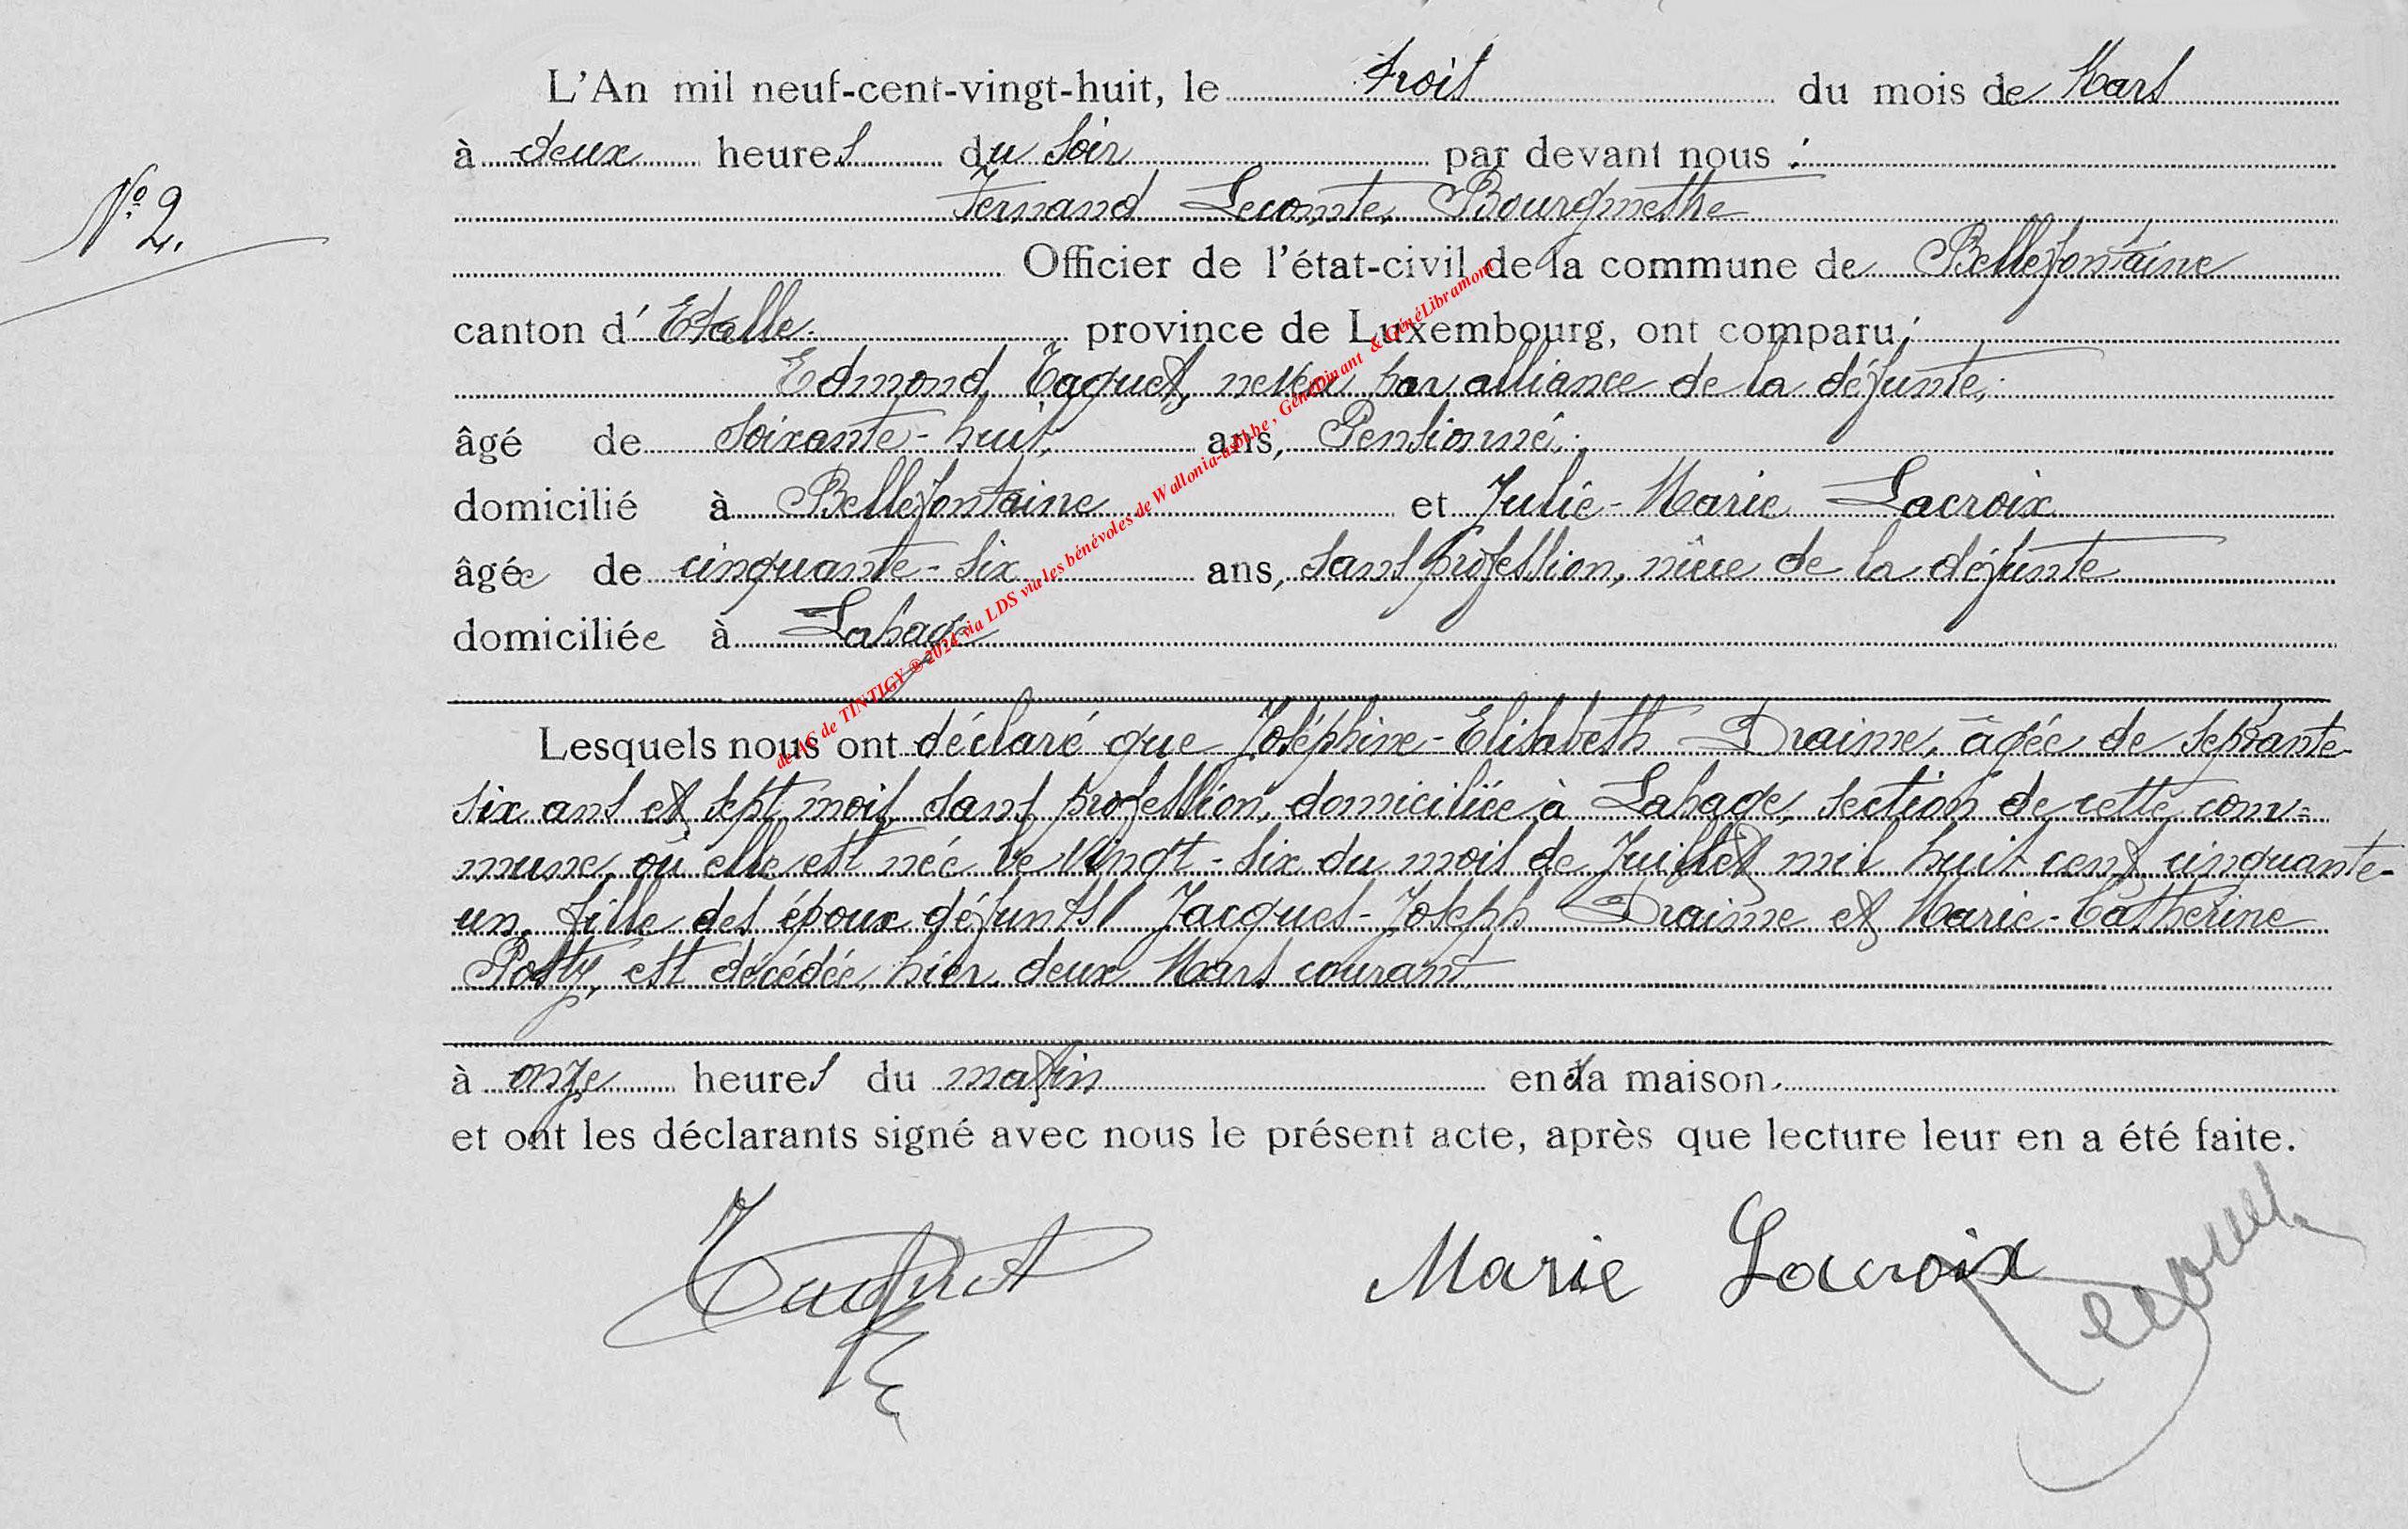 L'An mil neuf-cent-vingt-huit, le trois du mois de Mars
à deux heures du soir par devant nous :
N° 2.
Fernand Lecomte, Bourgmestre
Officier de l'état-civil de la commune de Bellefontaine
canton d'Etalle province de Luxembourg, ont comparu :
Edmond Taquet, neveu par alliance de la défunte,
âgé de soixante-huit ans, Pensionné,
domicilié à Bellefontaine et Julie-Marie Lacroix
âgée de cinquante-six ans, sans profession, nièce de la défunte
domiciliée à Lahage
de AC de TINTIGY ® 2024 via LDS via les bénévoles de Wallonia-asbl.be, GénéDinant & GénéLibramont
Lesquels nous ont déclaré que Joséphine-Elisabeth Draime, âgée de septante-
six ans et sept mois, sans profession, domiciliée à Lahage, section de cette com=
mune, où elle est née le vingt-six du mois de Juillet mil huit cent cinquante-
un, fille des époux défunts Jacques-Joseph Draime et Marie-Catherine
Posty, est décédée, hier, deux Mars courant
à onze heures du matin en sa maison.
et ont les déclarants signé avec nous le présent acte, après que lecture leur en a été faite.
Taquet
Marie Lacroix
Lecomte